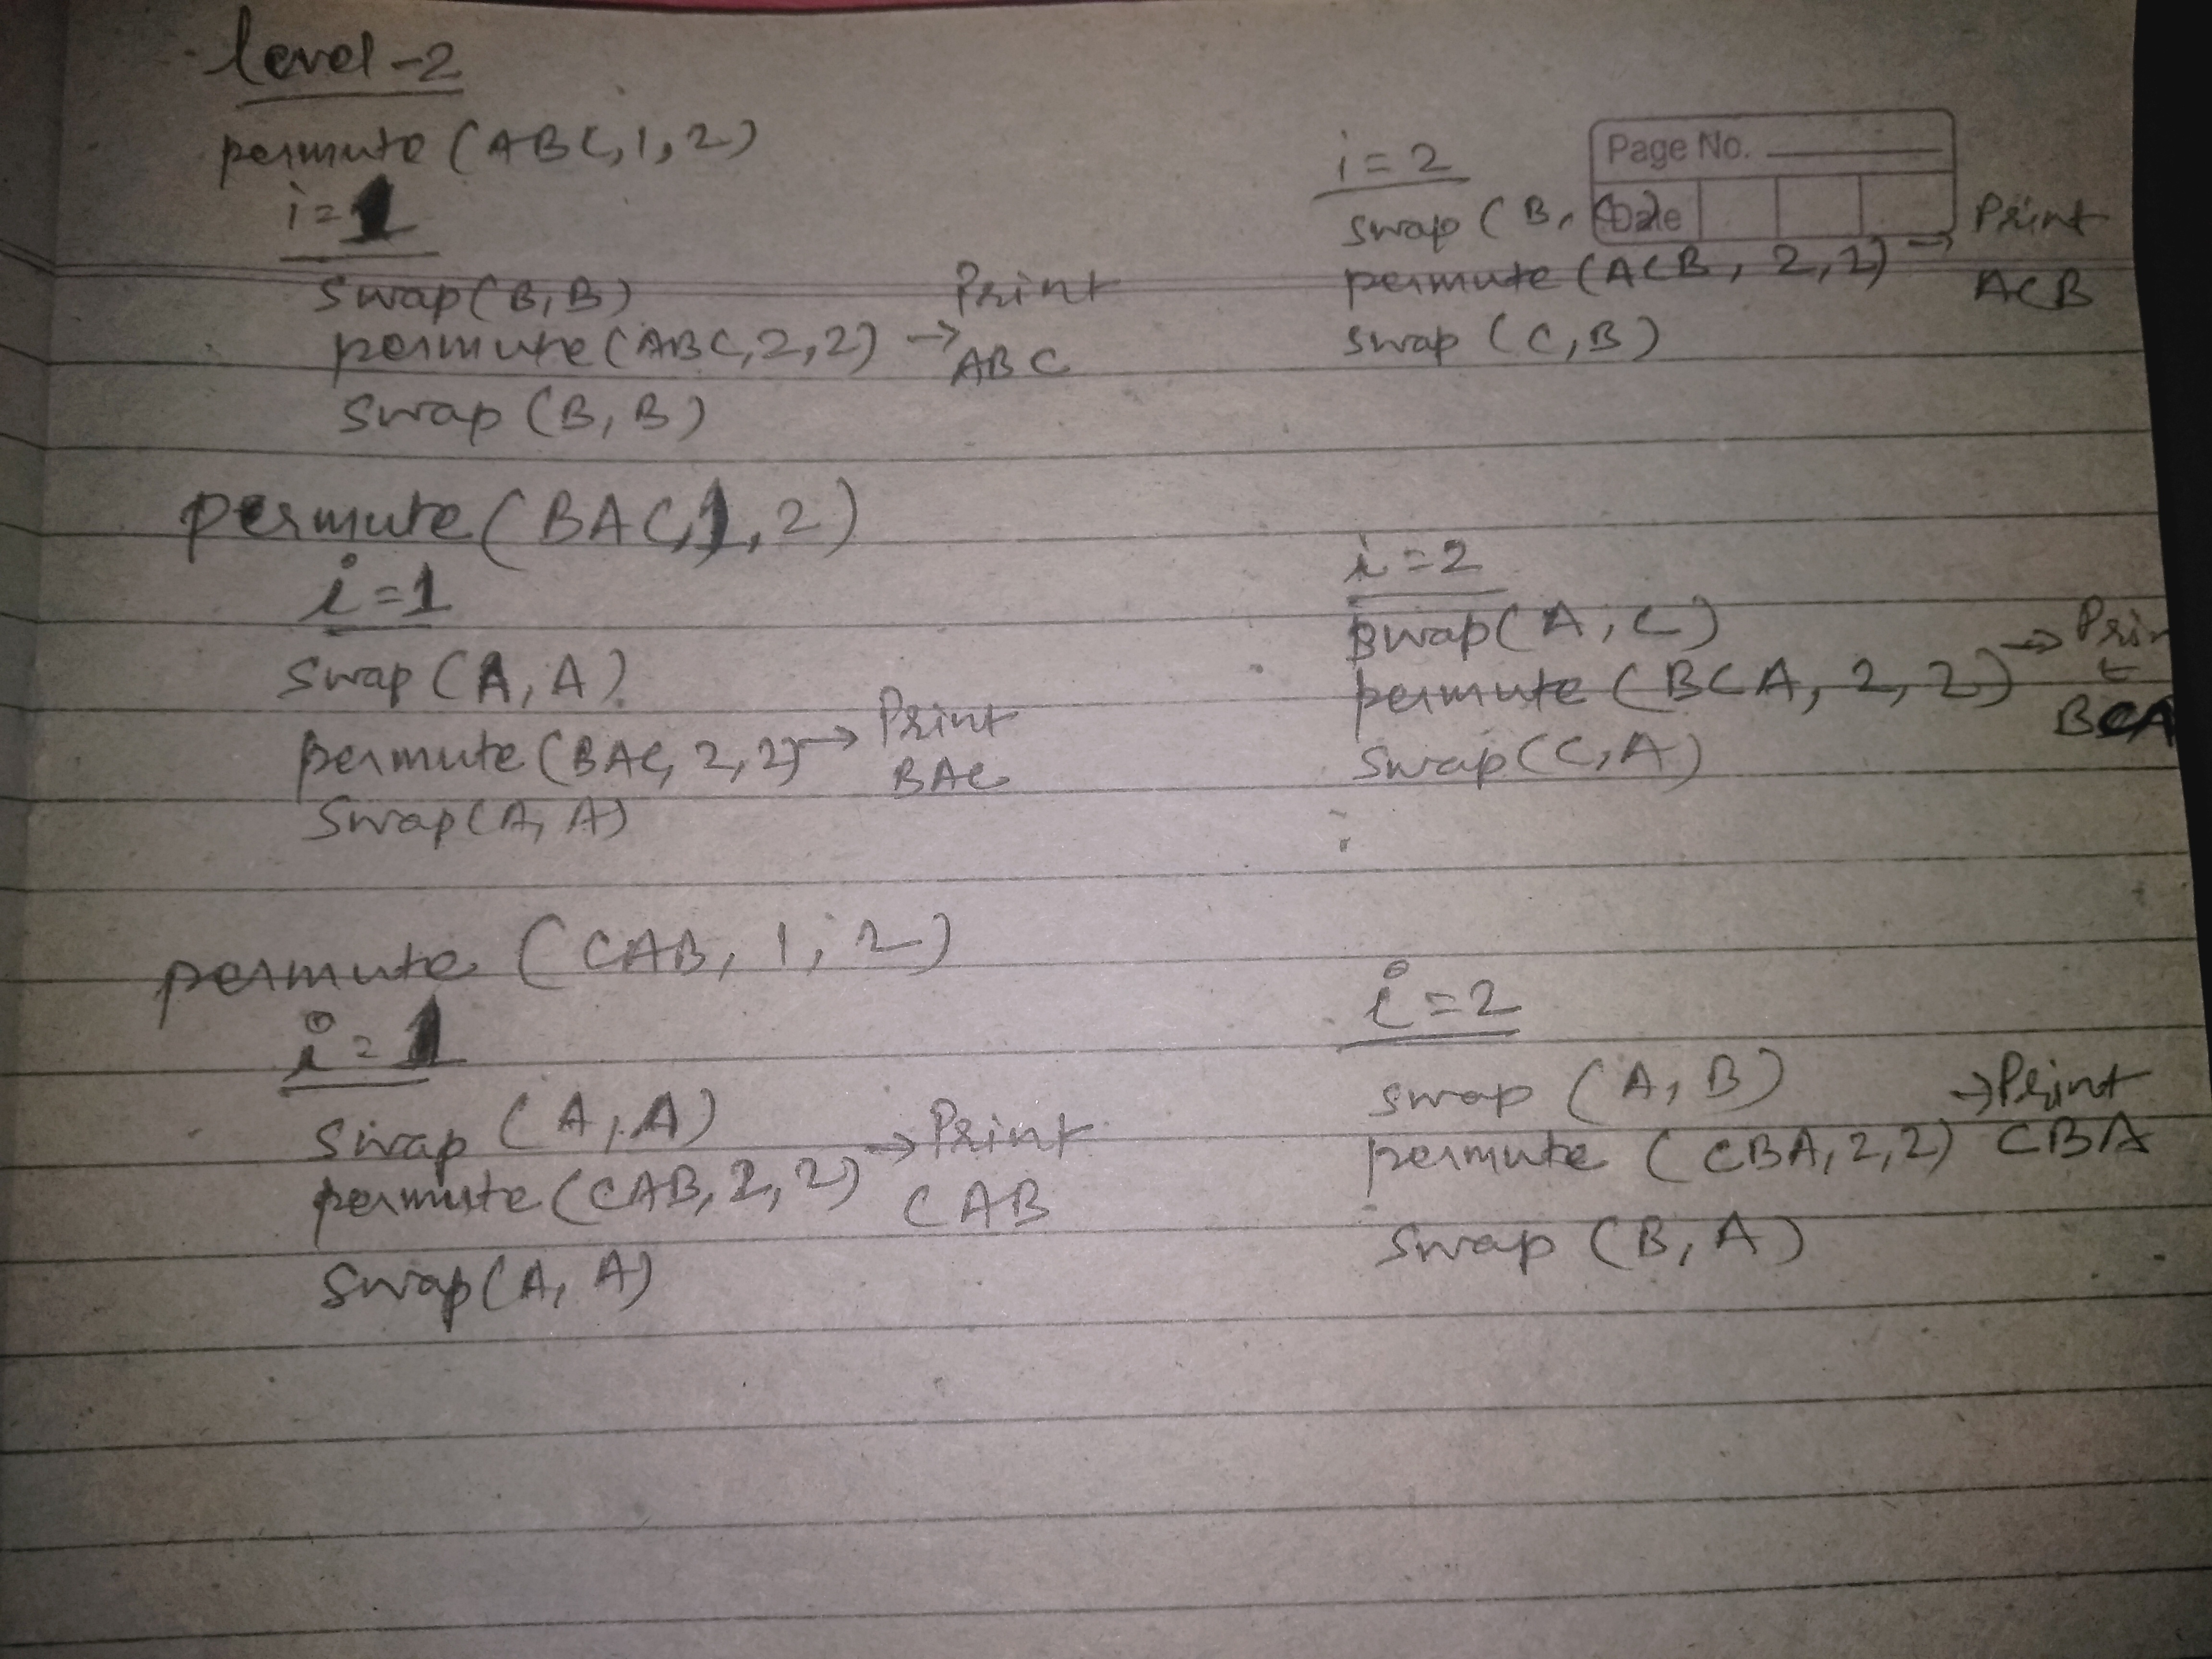 level-2
permute (ABC, 1, 2)
i=1
swap(B, B)
permute (ABC, 2, 2) → Print
ABC
swap (B, B)
Page No.
Date
i=2
swap (B, C)
permute (ACB, 2, 2) → Print
ACB
swap (C, B)
permute (BAC, 1, 2)
i=1
swap (A, A)
permute (BAC, 2, 2) → Print
BAC
swap (A, A)
i=2
swap (A, C)
permute (BCA, 2, 2) → Prin
t
BCA
swap (C, A)
permute (CAB, 1, 2)
i=1
swap (A, A)
permute (CAB, 2, 2) → Print
CAB
swap (A, A)
i=2
swap (A, B)
permute (CBA, 2, 2) → Print
CBA
swap (B, A)